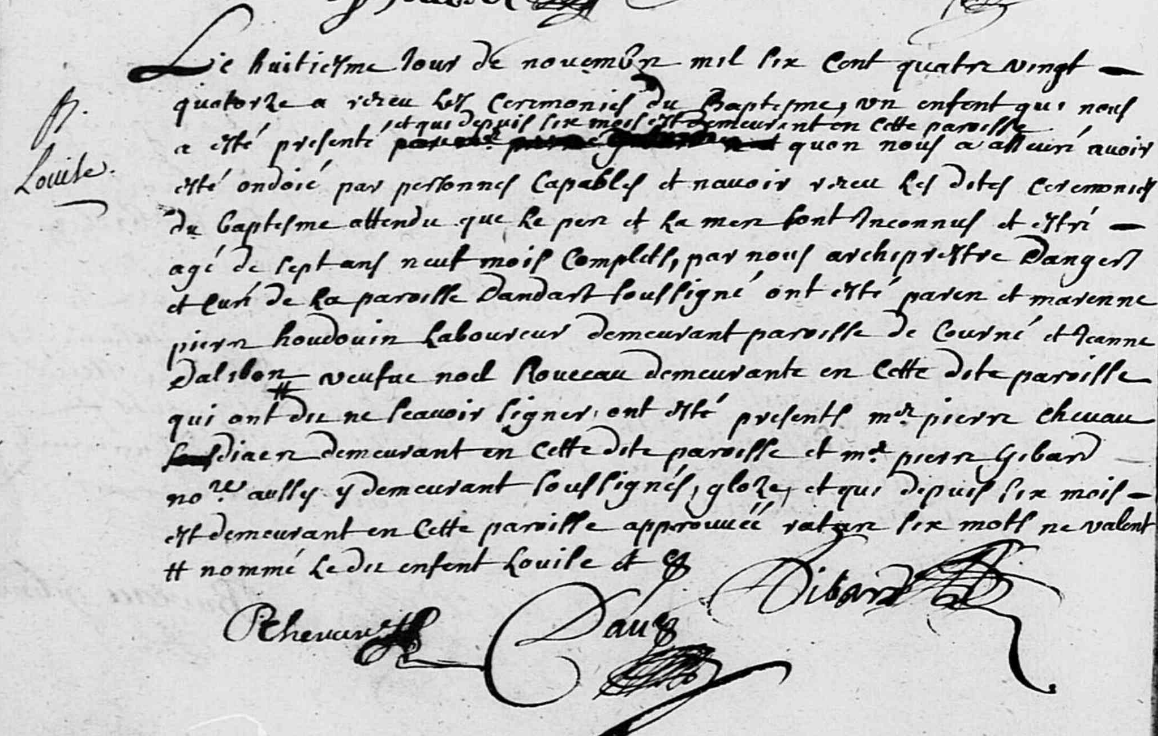 Le huitiesme Jour de novembre mil six cent quatre vingt
B.
quatorze a receu les Ceremonies du Baptesme, un enfent qui nous
et qui depuis six mois est demeurent en cette paroisse
a esté presenté quon nous a assuré avoir
Louise.
esté ondoié par personnes Capables et navoir receu les dites Ceremonies
du baptesme attendu que le pere et la mere sont Inconnus et estre
agé de sept ans neuf mois Complets, par nous archiprestre Dangers
et Curé de la paroisse Dandart soussigné ont esté parein et marenne
pierre houdouin Laboureur demeurant paroisse de Corné et Jeanne
Dalibon # veufue noel Rouceau demeurante en Cette dite paroisse
qui ont dit ne scavoir signer, ont esté presents mr. pierre Chevau
diacre demeurant en Cette dite paroisse et mr. pierre Gibard
nore. aussy y demeurant soussignés, gloze, et qui depuis six mois
est demeurant en Cette paroisse approuvéé rature six mots ne valent
# nommé le dit enfent Louise et
Gibard